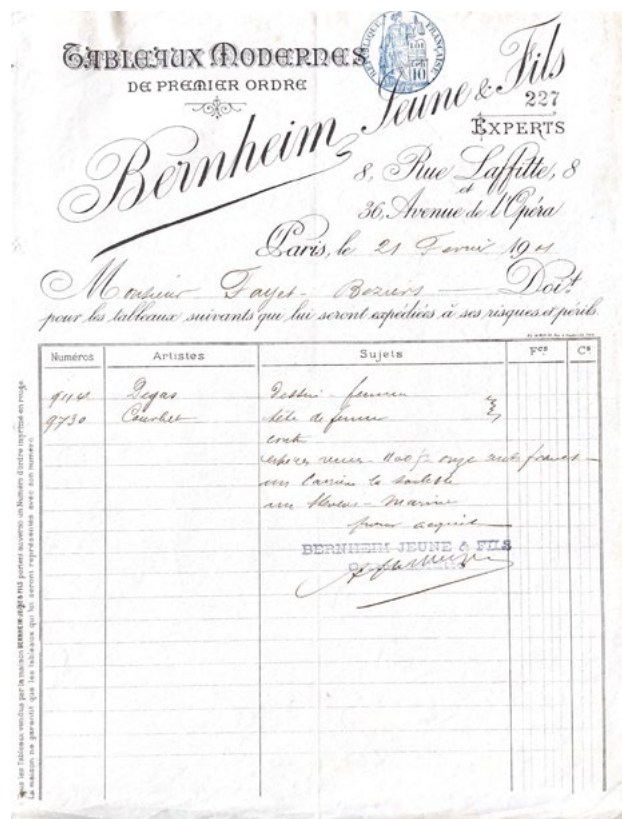 TABLEAUX MODERNES
DE PREMIER ORDRE
RÉPUBLIQUE FRANÇAISE
10
Bernheim Jeune & Fils
227
EXPERTS
8, Rue Laffitte, 8
et
36, Avenue de l'Opéra
Paris, le 21 Fevrier 1901
Monsieur Fayet - Beziers — Doit
pour les tableaux suivants qui lui seront expédiées à ses risques et périls.
Numéros Artistes Sujets Fcs Cs
9114 Degas Dessin - femme
9730 Courbet tête de femme
contre
espèces recues - 1100 f - onze cents francs —
un Carrière la
un Stevens - Marine
pour acquit
BERNHEIM JEUNE & FILS
Tous les Tableaux vendus par la maison BERNHEIM JEUNE & FILS portent au verso un Numéro d'ordre imprimé en rouge
La maison ne garantit que les tableaux qui lui seront représentés avec son numéro.